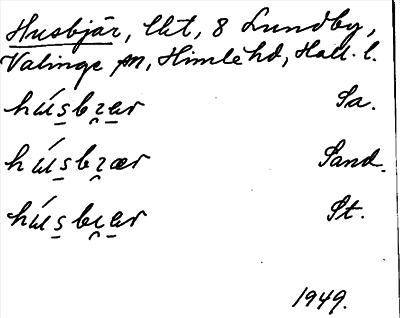 Husbjär, Ut, 8 Lundby,
Valinge sn, Himle hd, Hall. l.
húsbɩ̯ar Sa.
húsbɩ̯ær Sand.
húsbɩ̯ar St.
1949.